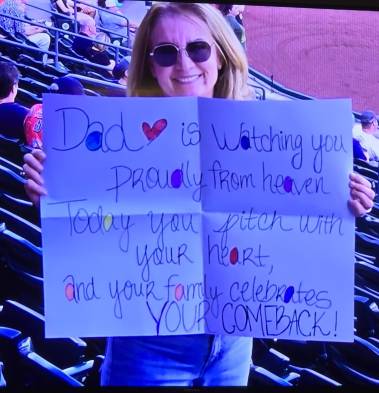 Dad is watching you
proudly from heaven
Today you pitch with
your heart,
and your family celebrates
YOUR COMEBACK!